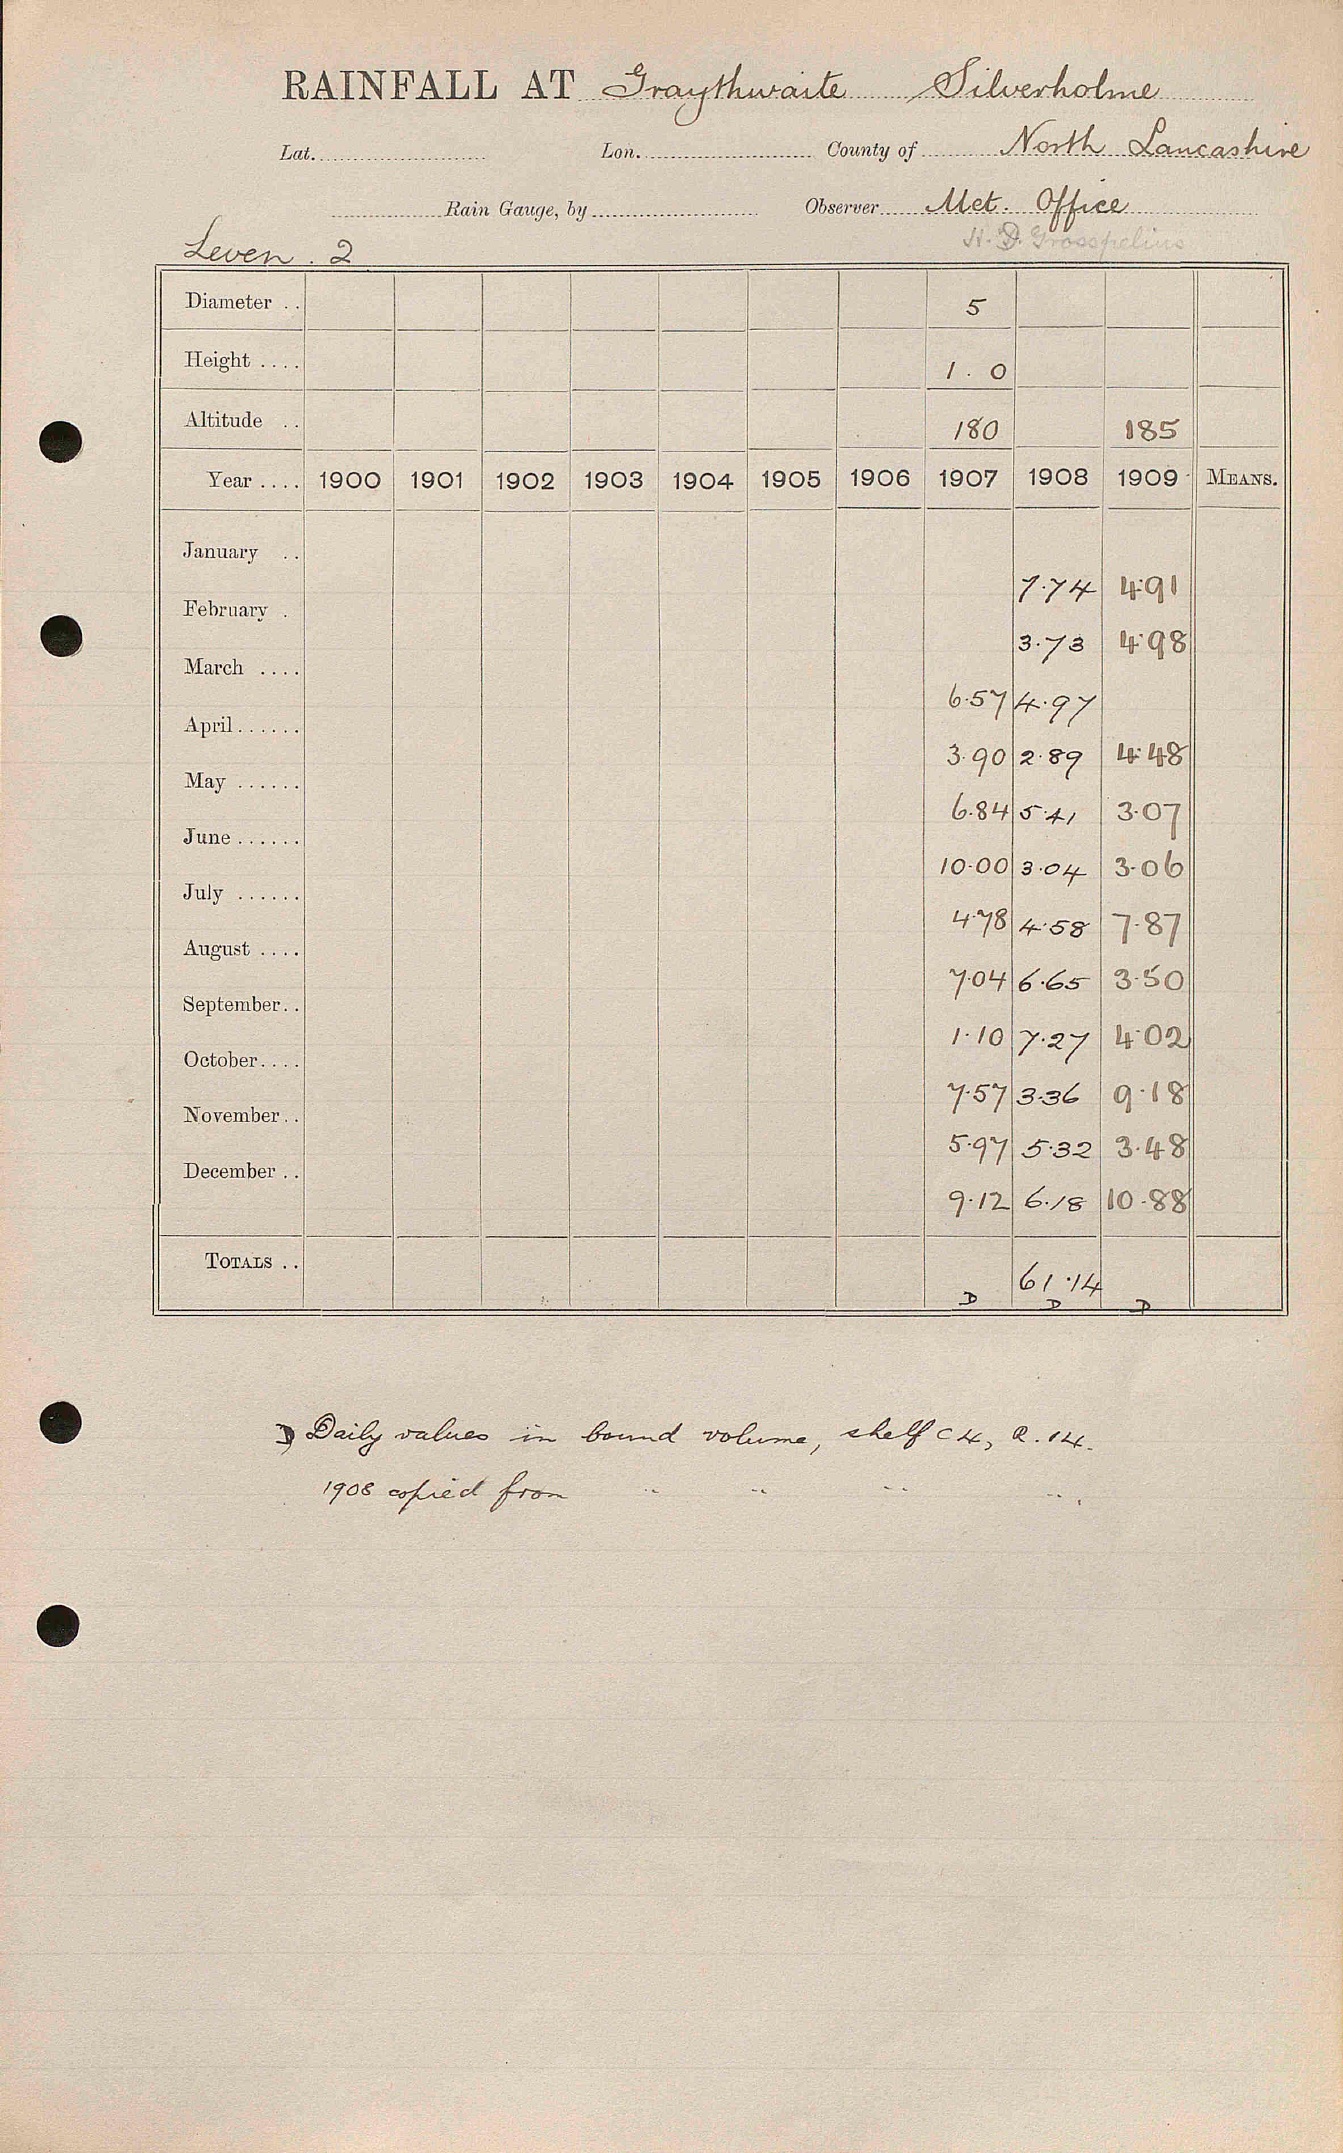 RAINFALL AT Graythwaite Silverholme
Lat. Lon. County of North Lancashire
Rain Gauge, by Observer Met. Office
H. D.
Leven . 2
Diameter .. 5
Height .... 1. 0
Altitude .. 180 185
Year .... 1900 1901 1902 1903 1904 1905 1906 1907 1908 1909 MEANS.
January .. 7.74 4.91
February . 3.73 4.98
March .... 6.57 4.97
April...... 3.90 2.89 4.48
May ...... 6.84 5.41 3.07
June ...... 10.00 3.04 3.06
July ...... 4.78 4.58 7.87
August .... 7.04 6.65 3.50
September.. 1.10 7.27 4.02
October.... 7.57 3.36 9.18
November.. 5.97 5.32 3.48
December .. 9.12 6.18 10.88
TOTALS .. 61.14
D D D
D Daily values in bound volume, shelf C4, R.14.
1908 copied from " " " "